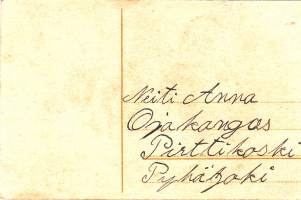 Neiti Anna
Ojakangas
Pirttikoski
Pyhäjoki